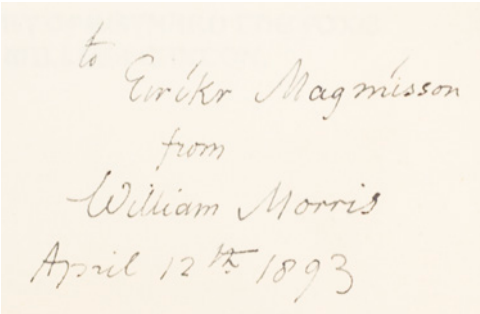 to
Eiríkr Magnússon
from
William Morris
April 12th 1893